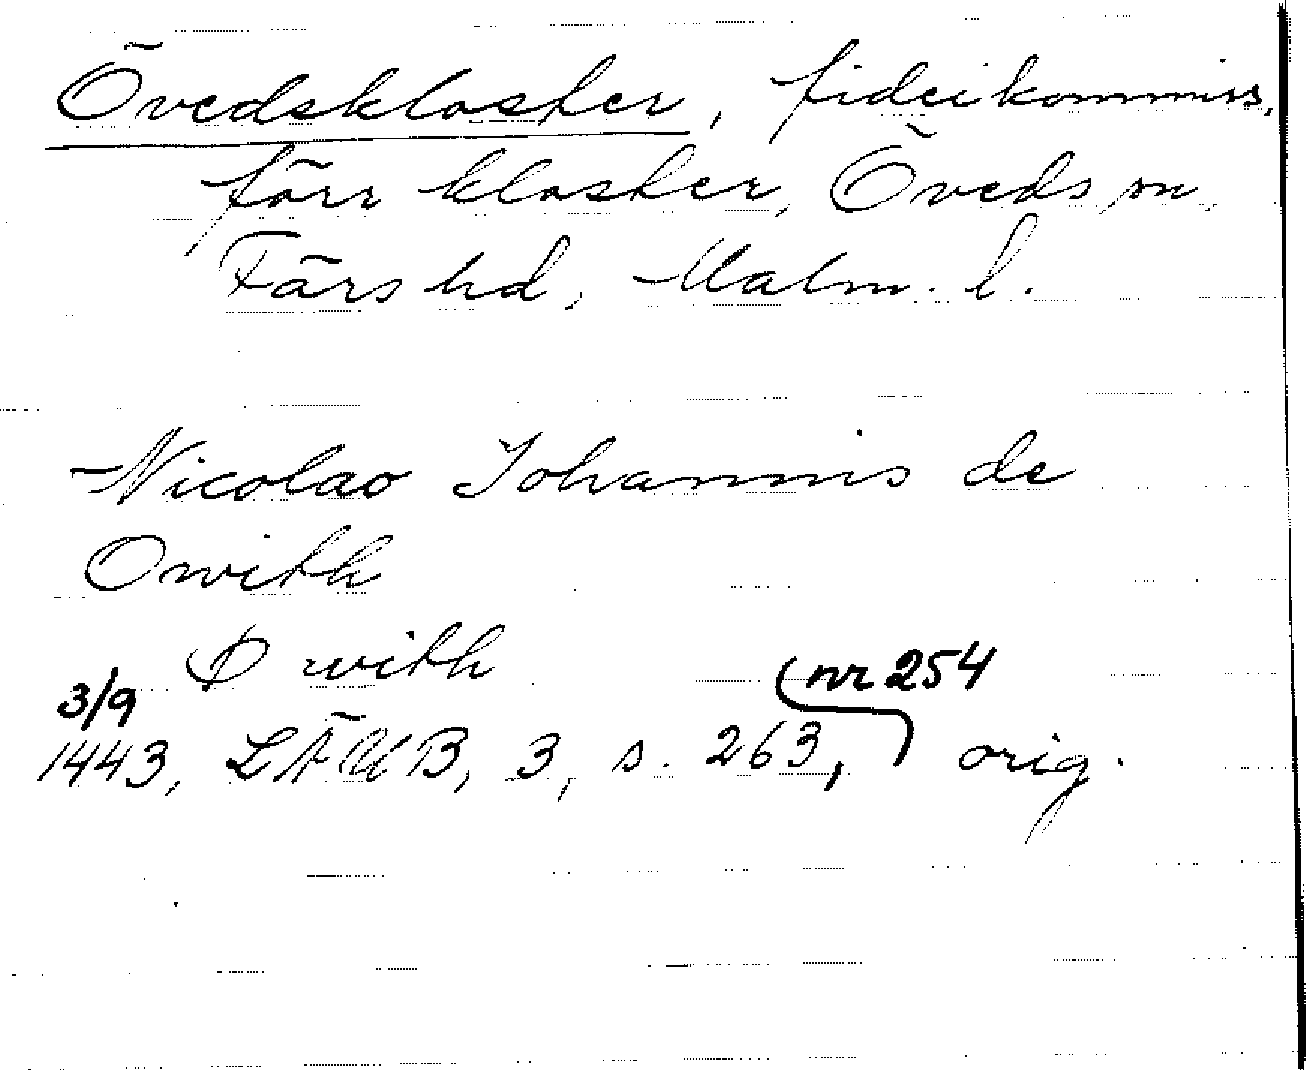 Övedskloster, fideikommiss,
förr kloster, Öveds sn,
Färs hd, Malm. l.
Nicolao Johannis de
Owith
Øwith
nr 254
3/9
1443, LÄUB, 3, s. 263, orig.